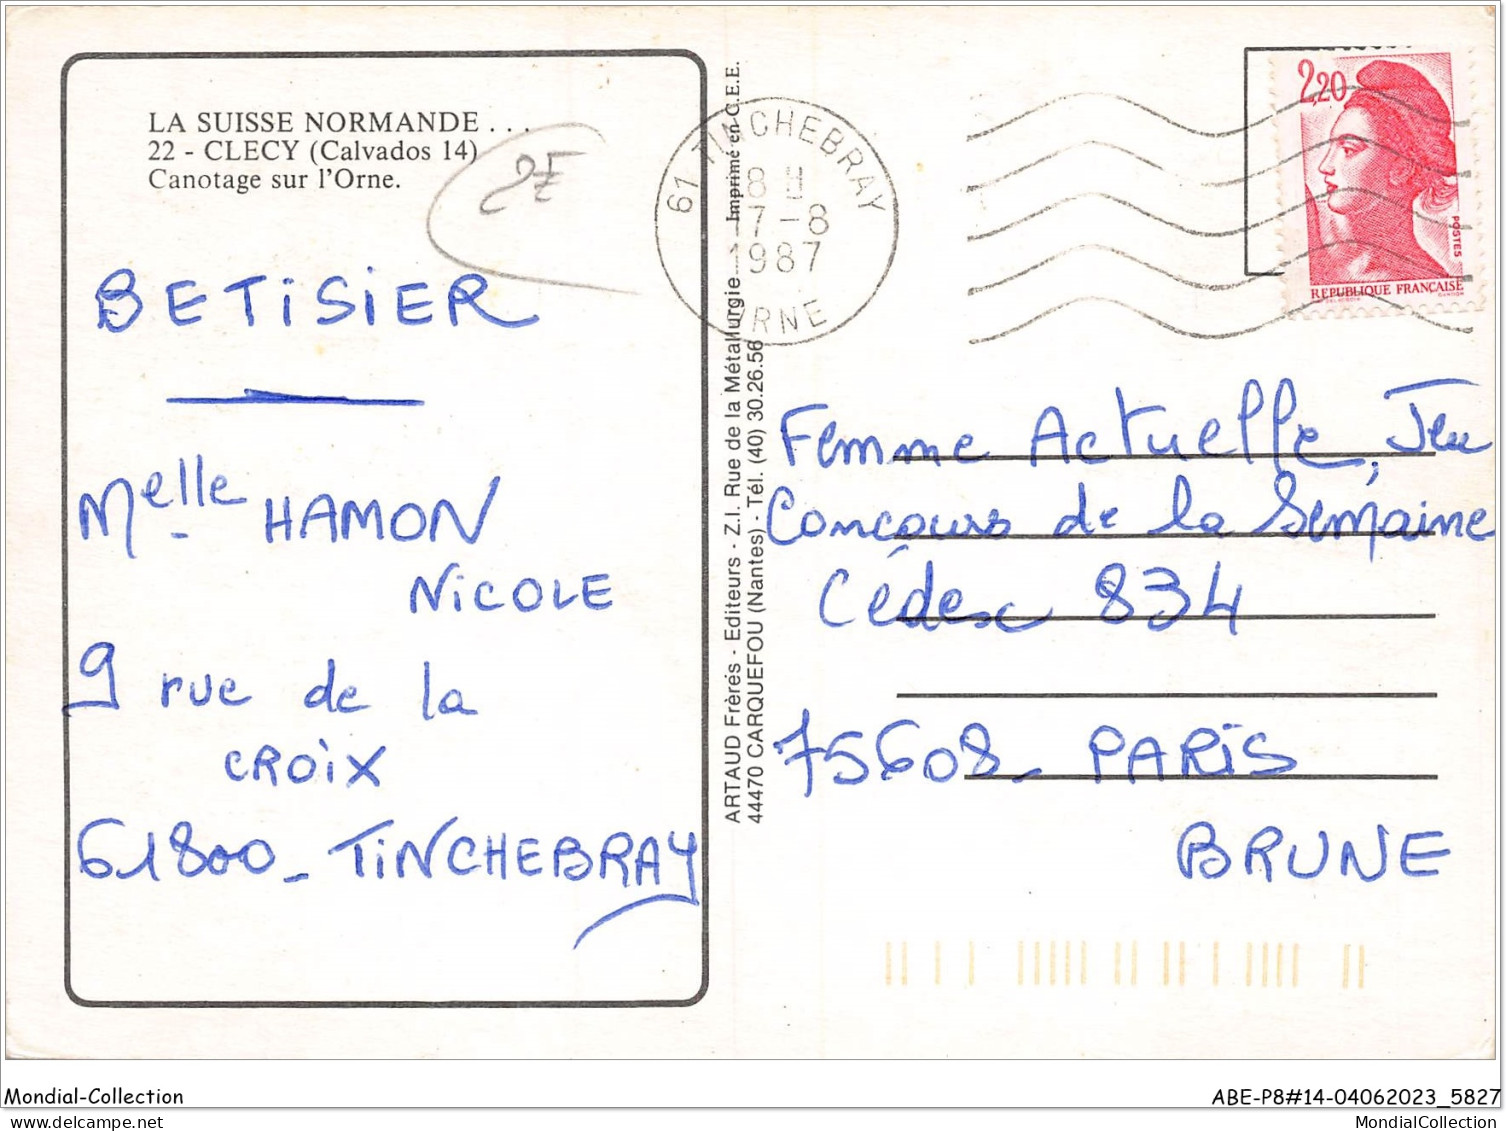 LA SUISSE NORMANDE . . .
22 - CLECY (Calvados 14)
Canotage sur l'Orne.
2F
BETISIER
Melle HAMON
NICOLE
9 rue de la
CROIX
61800 - TINCHEBRAY
Imprimé en C.E.E.
ARTAUD Frères - Editeurs - Z.I. Rue de la Métallurgie
44470 CARQUEFOU (Nantes) - Tél. (40) 30.26.56
61 TINCHEBRAY
8 H
17-8
1987
ORNE
2,20
POSTES
REPUBLIQUE FRANÇAISE
GANDON
Femme Actuelle, Jeu
Concours de la Semaine
Cédex 834
75608 - PARIS
BRUNE
Mondial-Collection
ABE-P8#14-04062023_5827
MondialCollection